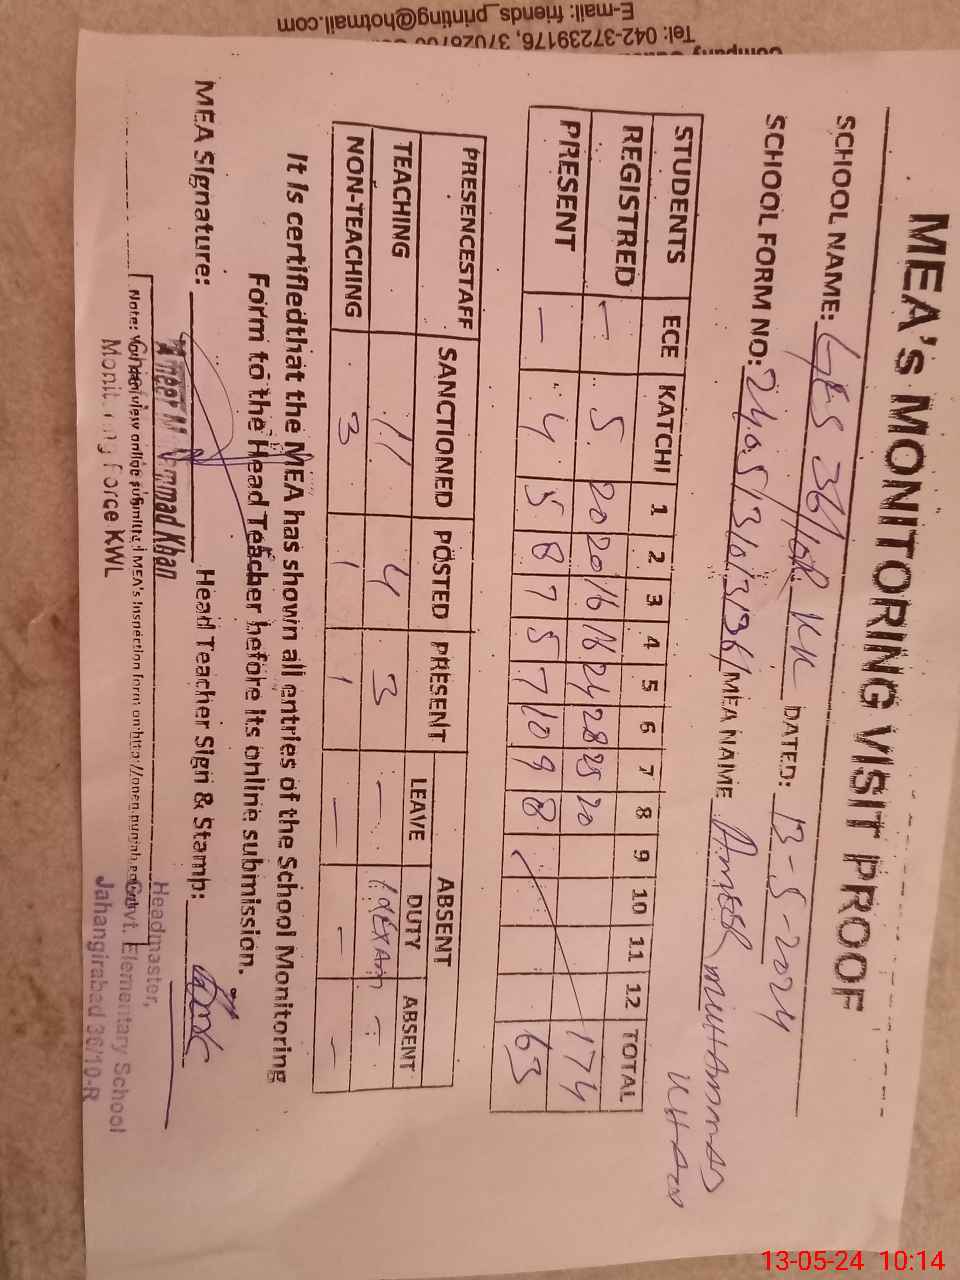 E-mail: friends_printing@hotmail.com
Tel: 042-37239176,
MEA's MONITORING VISIT PROOF
SCHOOL NAME: GES 36/10R KK DATED: 13-5-2024
SCHOOL FORM NO: MEA NAME Ameer MUHAMMAD KHAN
STUDENTS ECE KATCHI 1 2 3 4 5 6 7 8 9 10 11 12 TOTAL
REGISTRED - 5 20 20 16 16 24 28 25 20 174
PRESENT - 4 5 8 7 5 7 10 9 8 63
PRESENCESTAFF SANCTIONED POSTED PRESENT ABSENT
LEAVE DUTY ABSENT
TEACHING 11 4 3 - 1 EXAM -
NON-TEACHING 3 1 1 - - -
It is certifiedthat the MEA has shown all entries of the School Monitoring
Form to the Head Teacher before its online submission.
MEA Signature: Head Teacher Sign & Stamp:
Ameer Muhammad Khan
Monitoring Force KWL
Note: You can view online submitted MEA's Inspection form on http://open.punjab.gov.pk
Headmaster,
Govt. Elementary School
Jahangirabad 36/10-R
13-05-24 10:14